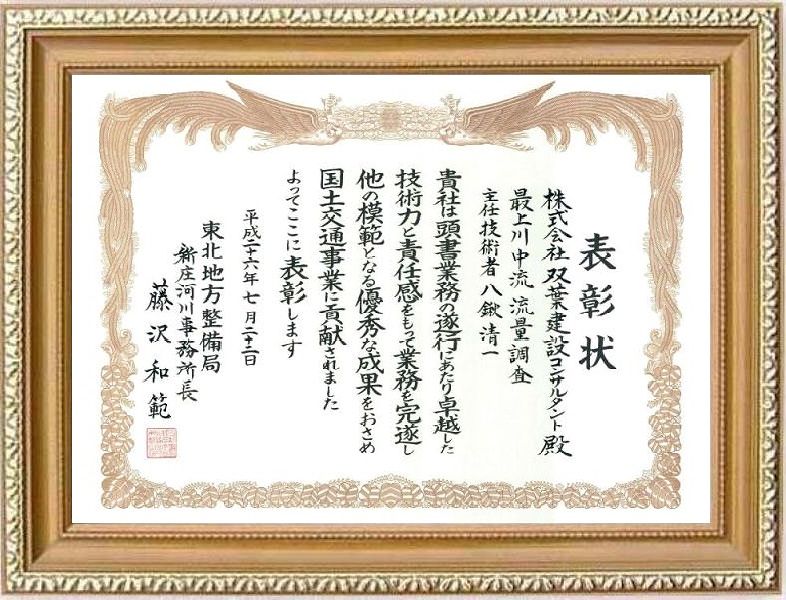 表彰状
株式会社 双葉建設コンサルタント 殿
最上川中流 流量調査
主任技術者 八鍬清一
貴社は頭書業務の遂行にあたり卓越した
技術力と責任感をもって業務を完遂し
他の模範となる優秀な成果をおさめ
国土交通事業に貢献されました
よってここに表彰します
平成二十六年七月二十二日
東北地方整備局
新庄河川事務所長
藤沢和範